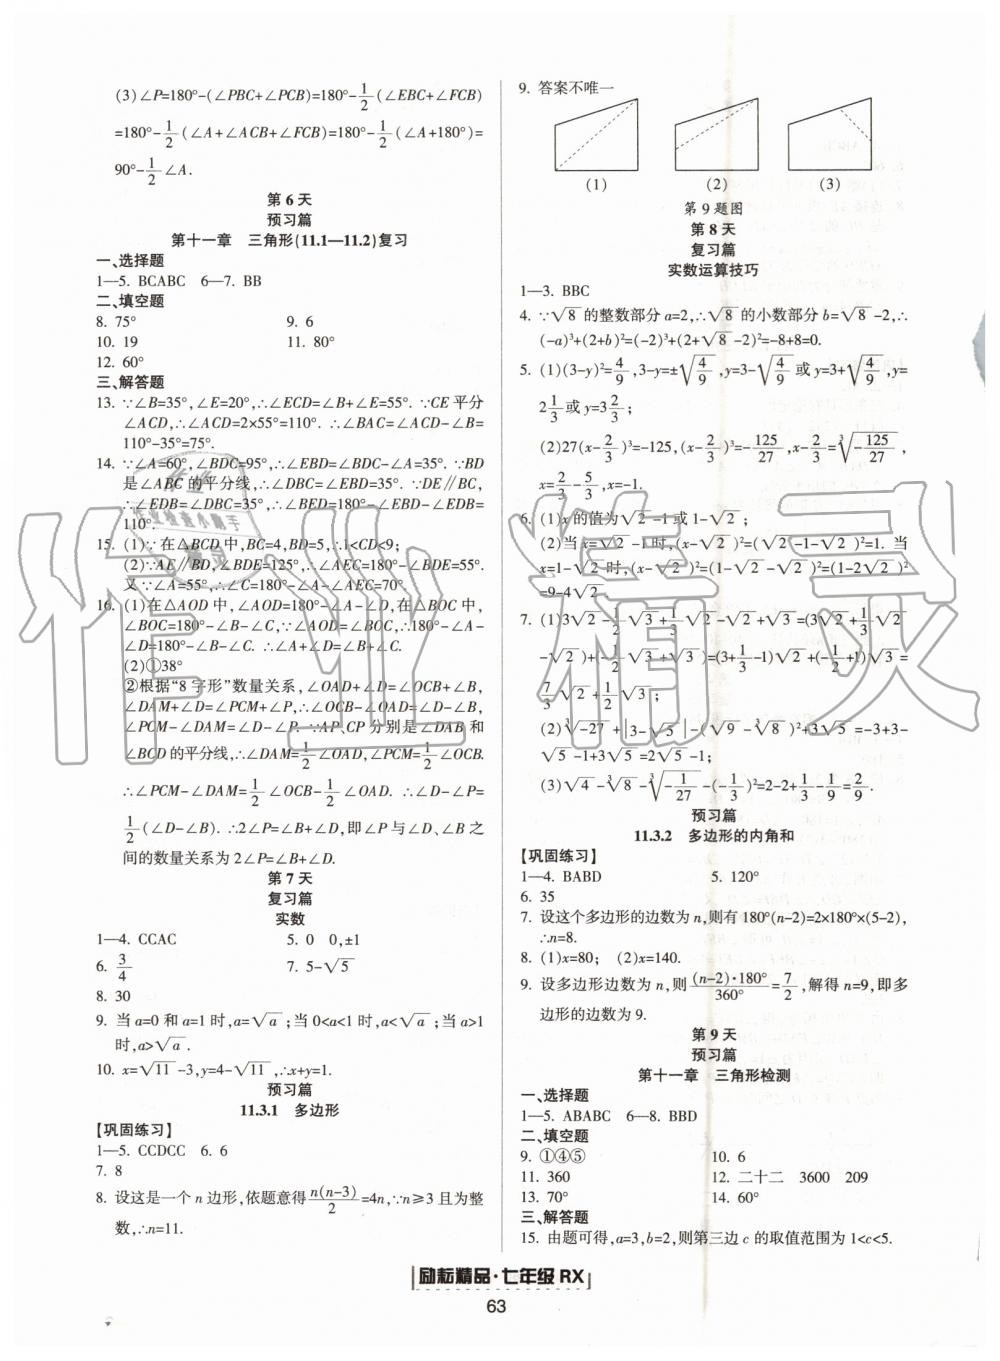 (3)∠P=180°-(∠PBC+∠PCB)=180°-1/2(∠EBC+∠FCB)
=180°-1/2(∠A+∠ACB+∠FCB)=180°-1/2(∠A+180°)=
90°-1/2∠A.
第6天
预习篇
第十一章 三角形(11.1—11.2)复习
一、选择题
1—5. BCABC 6—7. BB
二、填空题
8. 75° 9. 6
10. 19 11. 80°
12. 60°
三、解答题
13. ∵∠B=35°,∠E=20°,∴∠ECD=∠B+∠E=55°. ∵CE平分
∠ACD,∴∠ACD=2×55°=110°. ∴∠BAC=∠ACD-∠B=
110°-35°=75°.
14. ∵∠A=60°,∠BDC=95°,∴∠EBD=∠BDC-∠A=35°. ∵BD
是∠ABC的平分线,∴∠DBC=∠EBD=35°. ∵DE∥BC,
∴∠EDB=∠DBC=35°,∴∠BED=180°-∠EBD-∠EDB=
110°.
15. (1)∵在△BCD中,BC=4,BD=5,∴1<CD<9;
(2)∵AE∥BD,∠BDE=125°,∴∠AEC=180°-∠BDE=55°.
又∵∠A=55°,∴∠C=180°-∠A-∠AEC=70°.
16. (1)在△AOD中,∠AOD=180°-∠A-∠D,在∠BOC中,
∠BOC=180°-∠B-∠C,∵∠AOD=∠BOC,∴180°-∠A-
∠D=180°-∠B-∠C. ∴∠A+∠D=∠B+∠C.
(2)①38°
②根据“8字形”数量关系,∠OAD+∠D=∠OCB+∠B,
∠DAM+∠D=∠PCM+∠P,∴∠OCB-∠OAD=∠D-∠B,
∠PCM-∠DAM=∠D-∠P. ∵AP、CP分别是∠DAB和
∠BCD的平分线,∴∠DAM=1/2∠OAD,∠PCM=1/2∠OCB.
∴∠PCM-∠DAM=1/2∠OCB-1/2∠OAD. ∴∠D-∠P=
1/2(∠D-∠B). ∴2∠P=∠B+∠D,即∠P与∠D、∠B之
间的数量关系为2∠P=∠B+∠D.
第7天
复习篇
实数
1—4. CCAC 5. 0 0,±1
6. 3/4 7. 5-√5
8. 30
9. 当a=0和a=1时,a=√a;当0<a<1时,a<√a;当a>1
时,a>√a.
10. x=√11-3,y=4-√11,∴x+y=1.
预习篇
11.3.1 多边形
【巩固练习】
1—5. CCDCC 6. 6
7. 8
8. 设这是一个n边形,依题意得n(n-3)/2=4n,∵n≥3且为整
数,∴n=11.
9. 答案不唯一
(1) (2) (3)
第9题图
第8天
复习篇
实数运算技巧
1—3. BBC
4. ∵√8的整数部分a=2,∴√8的小数部分b=√8-2,∴
(-a)³+(2+b)²=(-2)³+(2+√8-2)²=-8+8=0.
5. (1)(3-y)²=4/9,3-y=±√(4/9),y=3-√(4/9)或y=3+√(4/9),y=
2 1/3或y=3 2/3;
(2)27(x-2/3)³=-125,(x-2/3)³=-125/27,x-2/3=∛(-125/27),
x=2/3-5/3,x=-1.
6. (1)x的值为√2-1或1-√2;
(2)当x=√2-1时,(x-√2)²=(√2-1-√2)²=1. 当
x=1-√2时,(x-√2)²=(1-√2-√2)²=(1-2√2)²
=9-4√2.
7. (1)3√2-1/2√3+1/3√2-√2+√3=(3√2+1/3√2
-√2)+(-1/2√3+√3)=(3+1/3-1)√2+(-1/2+1)√3=
7/3√2+1/2√3;
(2)∛-27+|3-√5|-(√9-∛8)²+3√5=-3+3-
√5-1+3√5=2√5-1;
(3)√4-∛8-∛(-1/27)-(-1/3)²=2-2+1/3-1/9=2/9.
预习篇
11.3.2 多边形的内角和
【巩固练习】
1—4. BABD 5. 120°
6. 35
7. 设这个多边形的边数为n,则有180°(n-2)=2×180°×(5-2),
∴n=8.
8. (1)x=80; (2)x=140.
9. 设多边形边数为n,则(n-2)·180°/360°=7/2,解得n=9,即多
边形的边数为9.
第9天
预习篇
第十一章 三角形检测
一、选择题
1—5. ABABC 6—8. BBD
二、填空题
9. ①④⑤ 10. 6
11. 360 12. 二十二 3600 209
13. 70° 14. 60°
三、解答题
15. 由题可得,a=3,b=2,则第三边c的取值范围为1<c<5.
励耘精品·七年级 RX
63
作业精灵